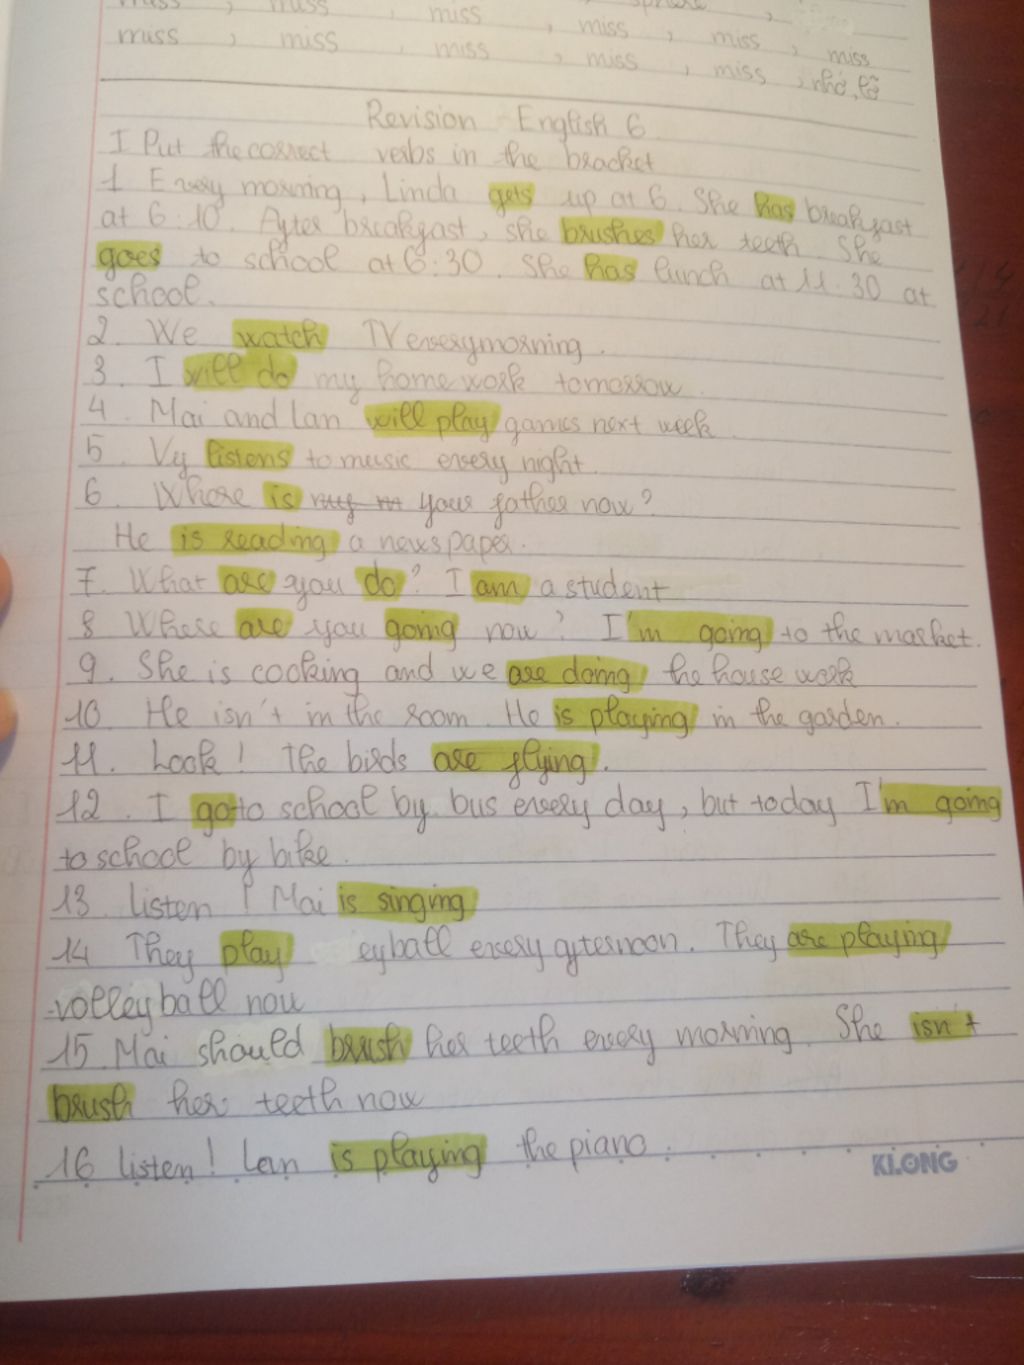 miss , miss , miss , miss , miss , miss
miss , miss , miss , miss , miss , nhớ, lỡ
Revision English 6
I Put the correct verbs in the bracket
1 Every morning, Linda gets up at 6. She has breakfast
at 6:10. After breakfast, she brushes her teeth. She
goes to school at 6:30. She has lunch at 11:30 at
school.
2. We watch TV every morning.
3. I will do my home work tomorrow.
4. Mai and Lan will play games next week.
5. Vy listens to music every night.
6. Where is your father now?
He is reading a newspaper.
7. What are you do? I am a student
8 Where are you going now? I'm going to the market.
9. She is cooking and we are doing the house work
10. He isn't in the room. He is playing in the garden.
11. Look! The birds are flying.
12. I go to school by bus every day, but today I'm going
to school by bike.
13. listen! Mai is singing
14 They play eyball every afternoon. They are playing
volleyball now
15 Mai should brush her teeth every morning. She isn't
brush her teeth now
16 listen! Lan is playing the piano.
KLONG